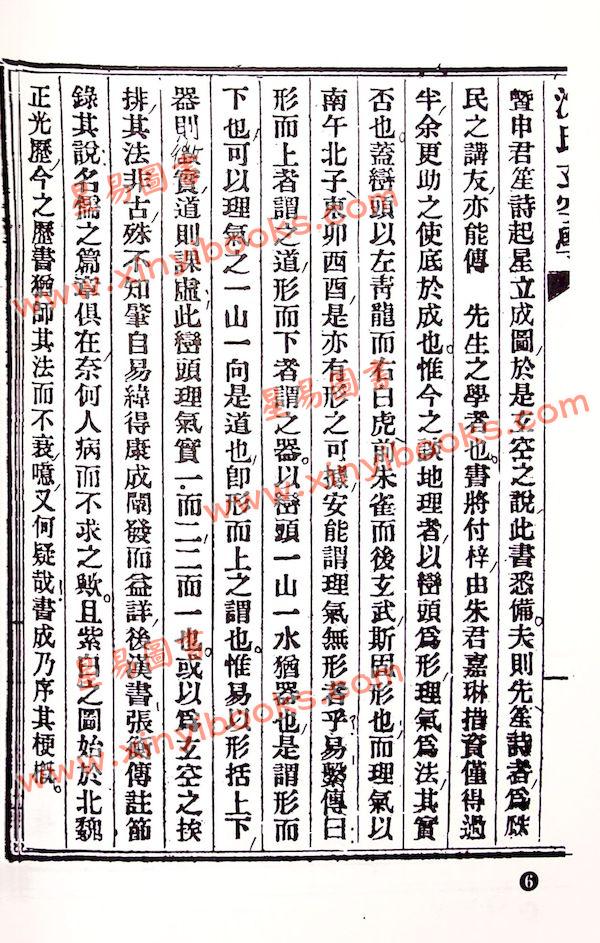 沈氏玄空學
暨申君笙詩起星立成圖於是玄空之說此書悉備夫則先笙詩者為
民之講友亦能傳　先生之學者也。書將付梓由朱君嘉琳措資僅得過
半余更助之使底於成也惟今之談地理者以巒頭爲形理氣爲法其實
否也蓋巒頭以左靑龍而右白虎前朱雀而後玄武斯固形也而理氣以
南午北子東卯西酉是亦有形之可據安能謂理氣無形者乎易繫傳曰
形而上者謂之道形而下者謂之器以巒頭一山一水猶器也是謂形而
下也可以理氣之一山一向是道也卽形而上之謂也。惟易以形括上下
器則徵實道則課虛此巒頭理氣實一而二二而一也。或以爲玄空之挨
排其法非古殊不知肇自易緯得康成闡發而益詳後漢書張衡傳註節
錄其說名儒之篇章俱在奈何人病而不求之歟。且紫白之圖始於北魏
正光歷今之歷書猶師其法而不衰噫又何疑哉書成乃序其梗槪。
6
星易圖書
www.xinyibooks.com
星易圖書
www.xinyibooks.com
星易圖書
www.xinyibooks.com